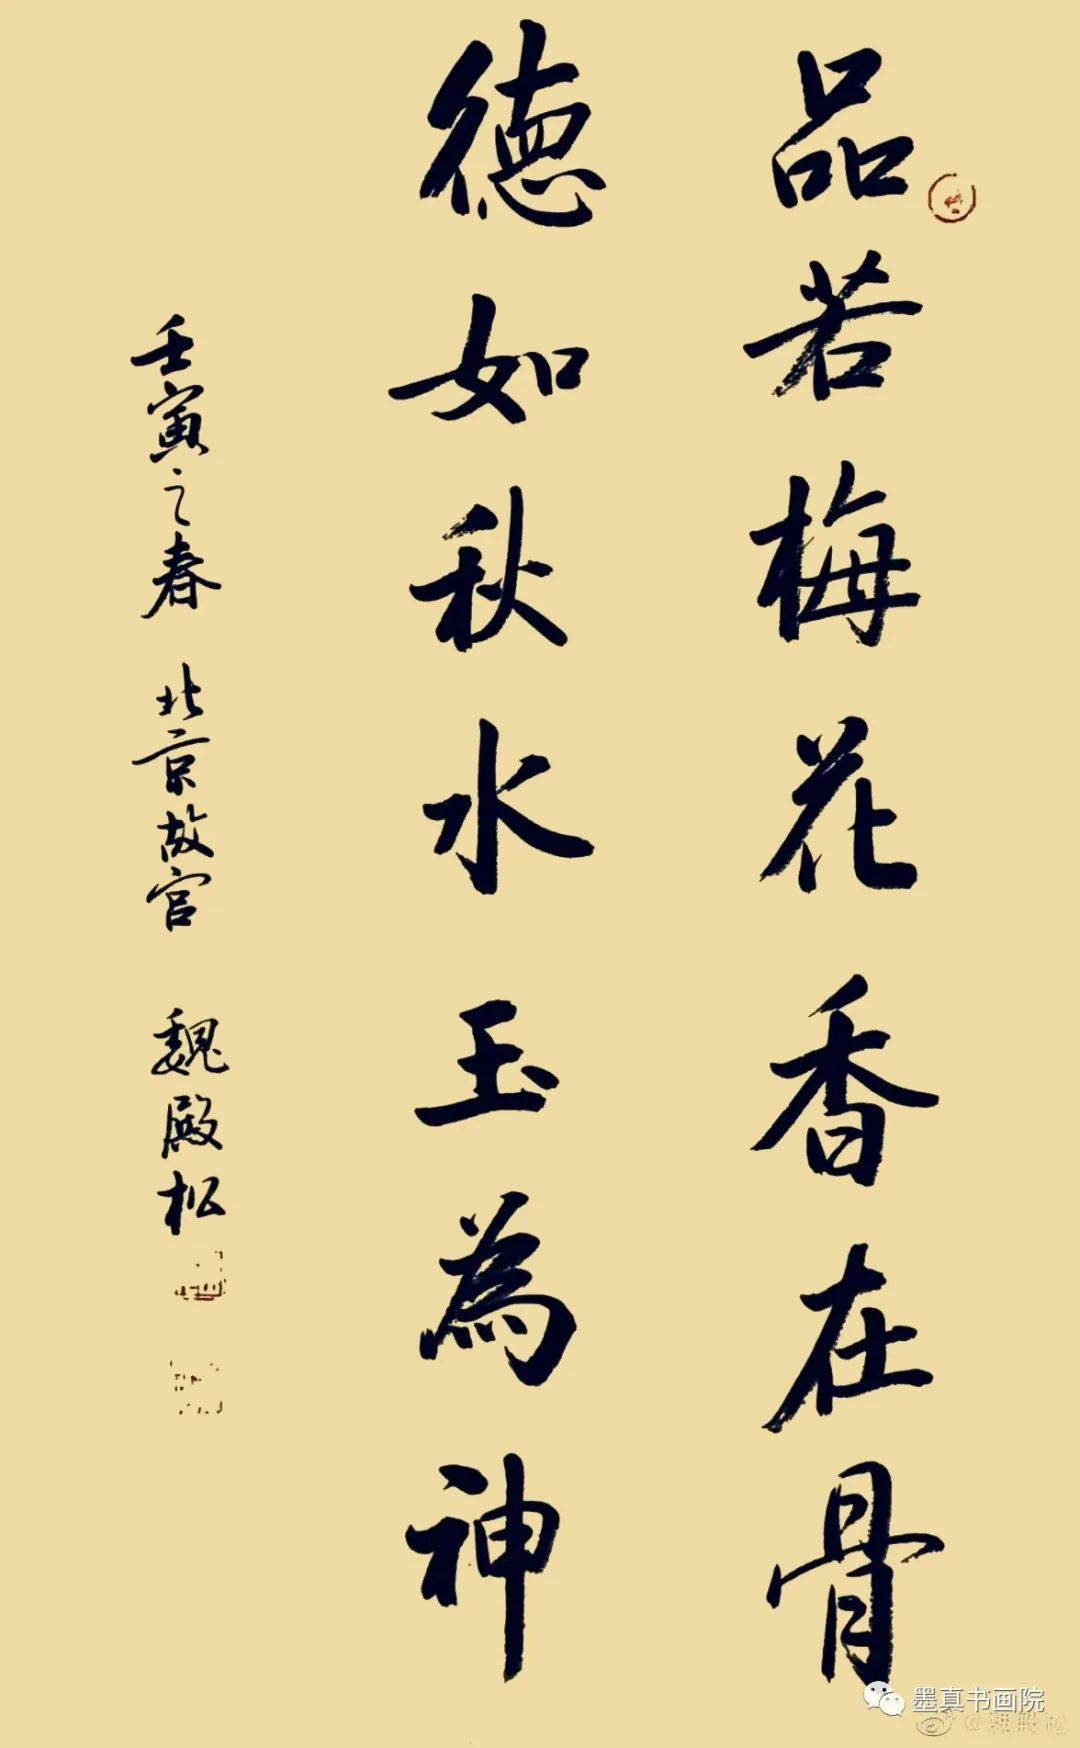 品若梅花香在骨
德如秋水玉為神
壬寅之春 北京故宫 魏殿松
墨真书画院
@魏殿松